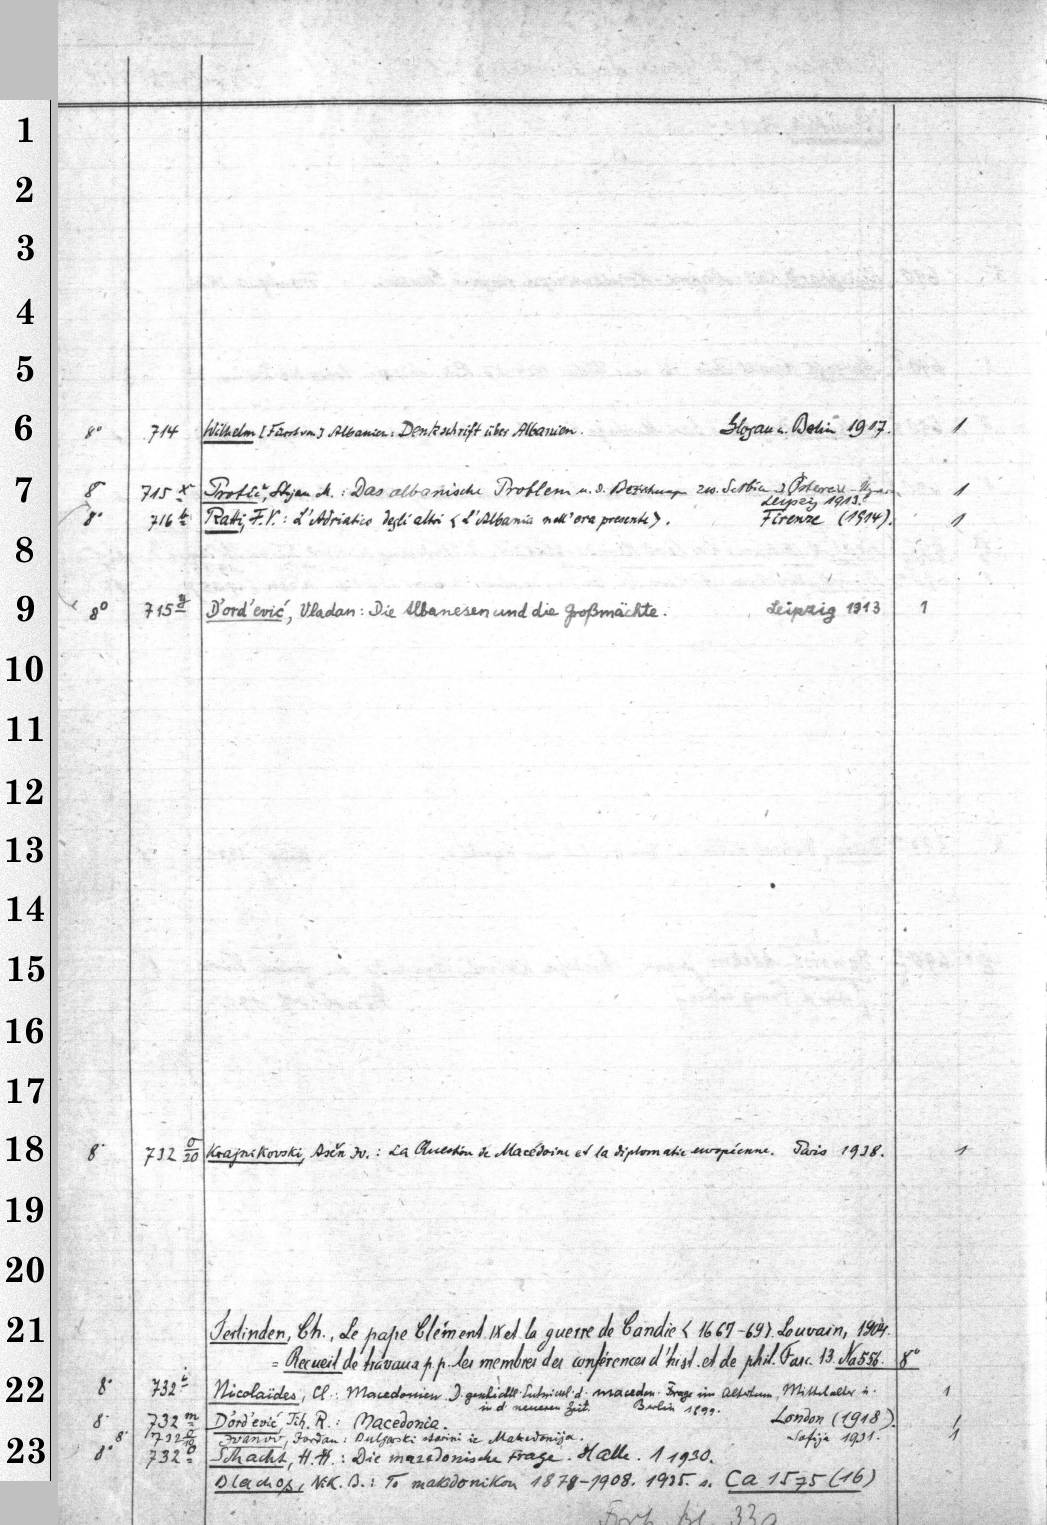 1
2
3
4
5
6
8° 714 Wilhelm [Fürst von] Albanien: Denkschrift über Albanien. Glogau u. Berlin 1917. 1
7
8° 715 x Protić, Stojan M.: Das albanische Problem u. d. Beziehungen zw. Serbien u. Österreich-Ungarn
Leipzig 1913. 1
8° 716 Ratti, F. V.: L'Adriatico degli altri < L'Albania nell'ora presente >. Firenze (1914). 1
8
9
8° 715 D'ord'ević, Vladan: Die Albanesen und die Großmächte. Leipzig 1913 1
10
11
12
13
14
15
16
17
18
8° 732 o/20 Krajnikovski, Asěn Iv.: La Question de Macédoine et la diplomatie européenne. Paris 1938. 1
19
20
21
Terlinden, Ch., Le pape Clément IX et la guerre de Candie < 1667-69 >. Louvain, 1904.
= Recueil de travaux p. p. les membres des conférences d'hist. et de phil. Fasc. 13. Na 556. 8°
22
8° 732 Nicolaïdes, Cl.: Macedonien. D. geschichtl. Entwickl. d. macedon. Frage im Altertum, Mittelalter u.
in d. neueren Zeit. Berlin 1899. 1
8° 732 m D'ord'ević, Tih. R.: Macedonia. London (1918). 1
8° 732 Ivanov, Jordan: Bulgarski starini iz Makedonija. Sofija 1931. 1
23
8° 732 o Schacht, H. H.: Die mazedonische Frage. Halle. 1930.
Blachos, Nik. B.: To makedonikon 1878-1908. 1935. s. Ca 1575 (16)
Forts. Bl. 33a